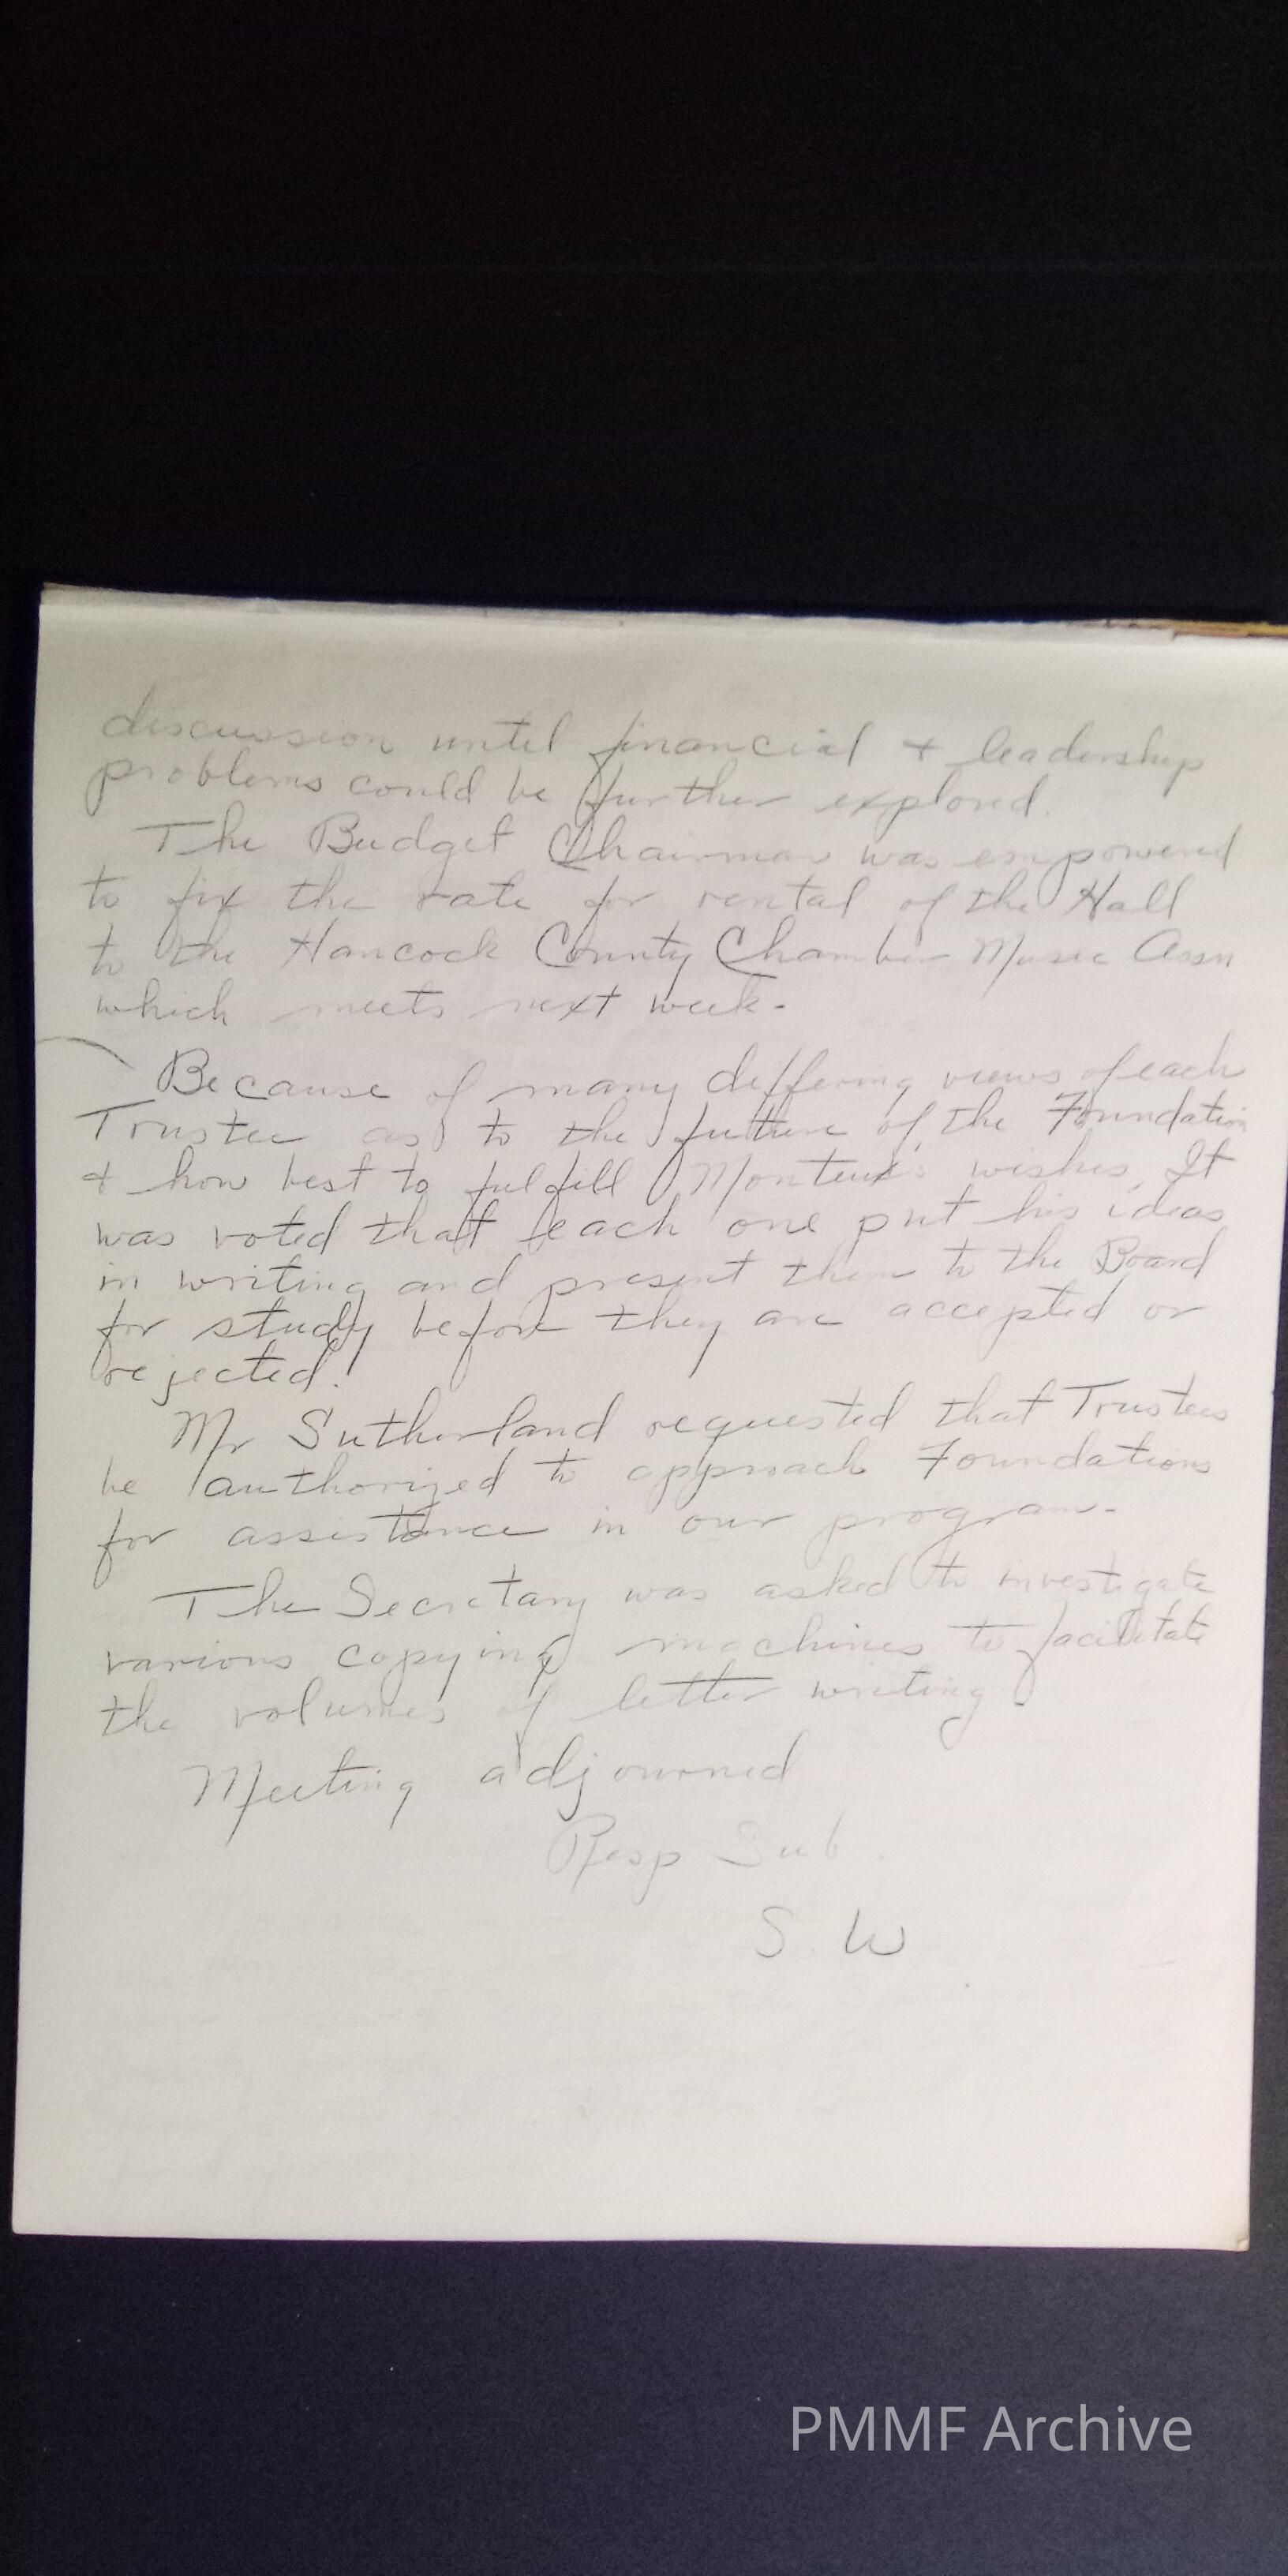 discussion until financial + leadership
problems could be further explored.
The Budget Chairman was empowered
to fix the rate for rental of the Hall
to the Hancock County Chamber Music Assn
which meets next week.
Because of many differing views of each
Trustee as to the future of the Foundation
+ how best to fulfill Monteux's wishes, It
was voted that each one put his ideas
in writing and present them to the Board
for study before they are accepted or
rejected.
Mr Sutherland requested that Trustees
be authorized to approach Foundations
for assistance in our program.
The Secretary was asked to investigate
various copying machines to facilitate
the volumes of letter writing
Meeting adjourned
Resp Sub.
S. W
PMMF Archive